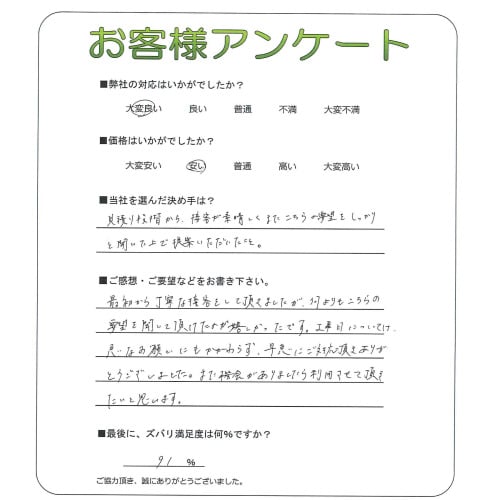 お客様アンケート
■弊社の対応はいかがでしたか?
大変良い 良い 普通 不満 大変不満
■価格はいかがでしたか?
大変安い 安い 普通 高い 大変高い
■当社を選んだ決め手は?
見積り段階から、接客が素晴しくまたこちらの要望をしっかり
と聞いた上で提案いただいたこと。
■ご感想・ご要望などをお書き下さい。
最初から丁寧な接客をして頂きましたが、何よりもこちらの
要望を聞いて頂けたのが嬉しかったです。工事日については、
急なお願いにもかかわらず、早急にご対応頂きありが
とうございました。また機会がありましたら利用させて頂き
たいと思います。
■最後に、ズバリ満足度は何%ですか?
91 %
ご協力頂き、誠にありがとうございました。